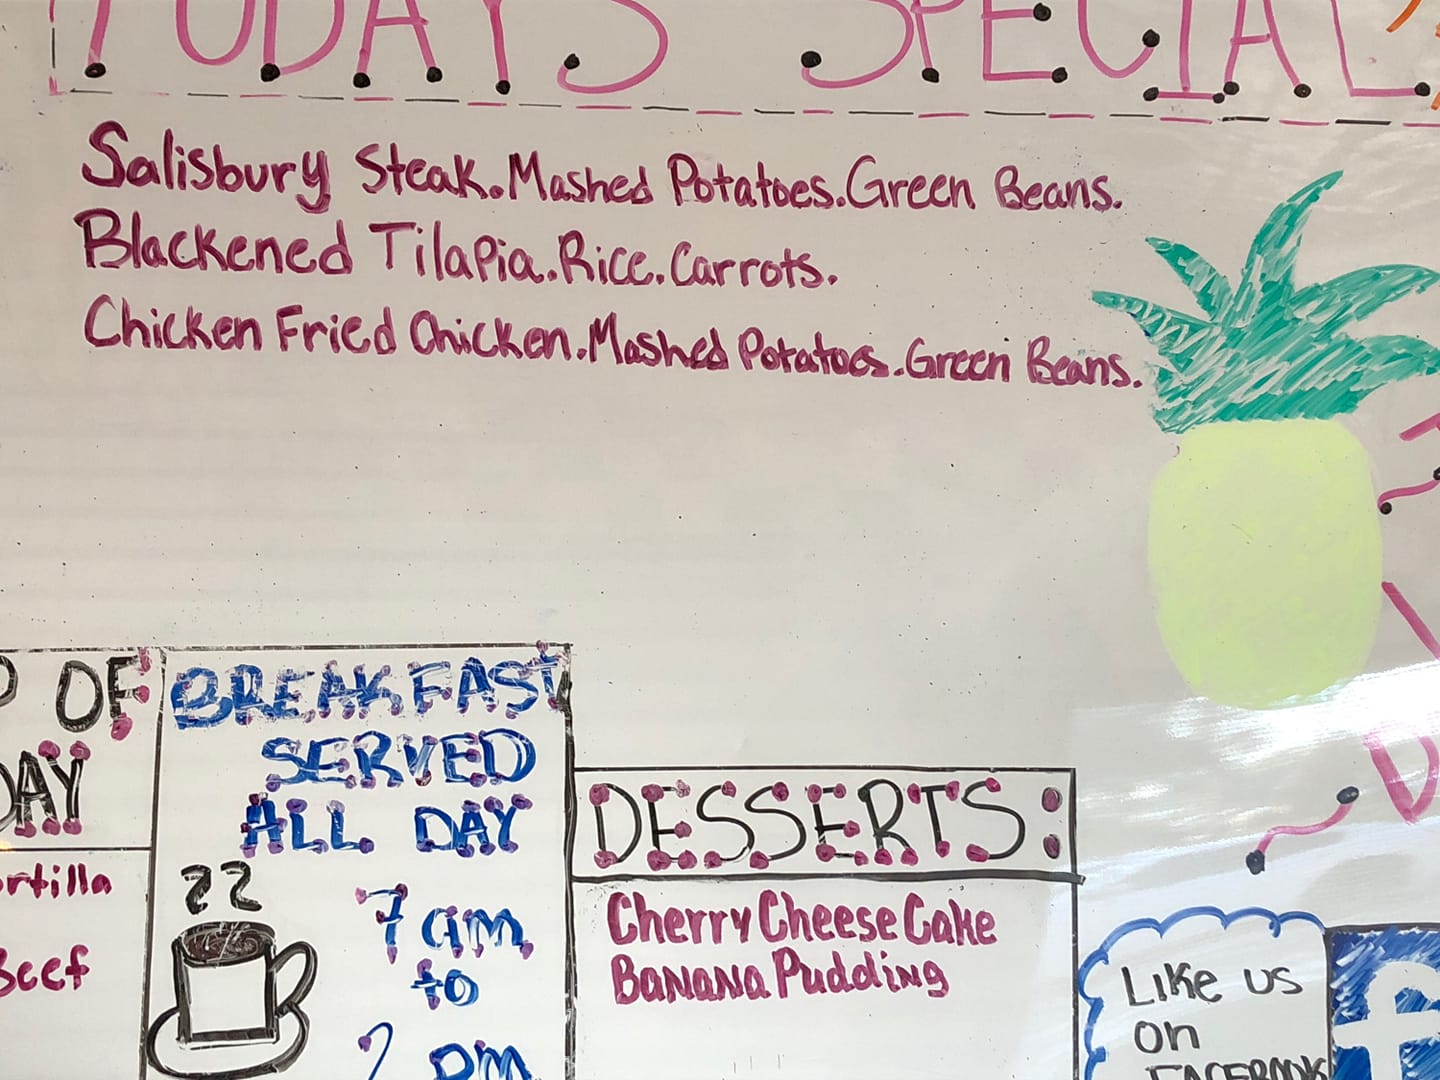 TODAY'S SPECIAL
Salisbury Steak. Mashed Potatoes. Green Beans.
Blackened Tilapia. Rice. Carrots.
Chicken Fried Chicken. Mashed Potatoes. Green Beans.
OF
DAY
Beef
BREAKFAST
SERVED
ALL DAY
7 am
to
2 pm
DESSERTS:
Cherry Cheese Cake
Banana Pudding
Like us
on
FACEBOOK
f